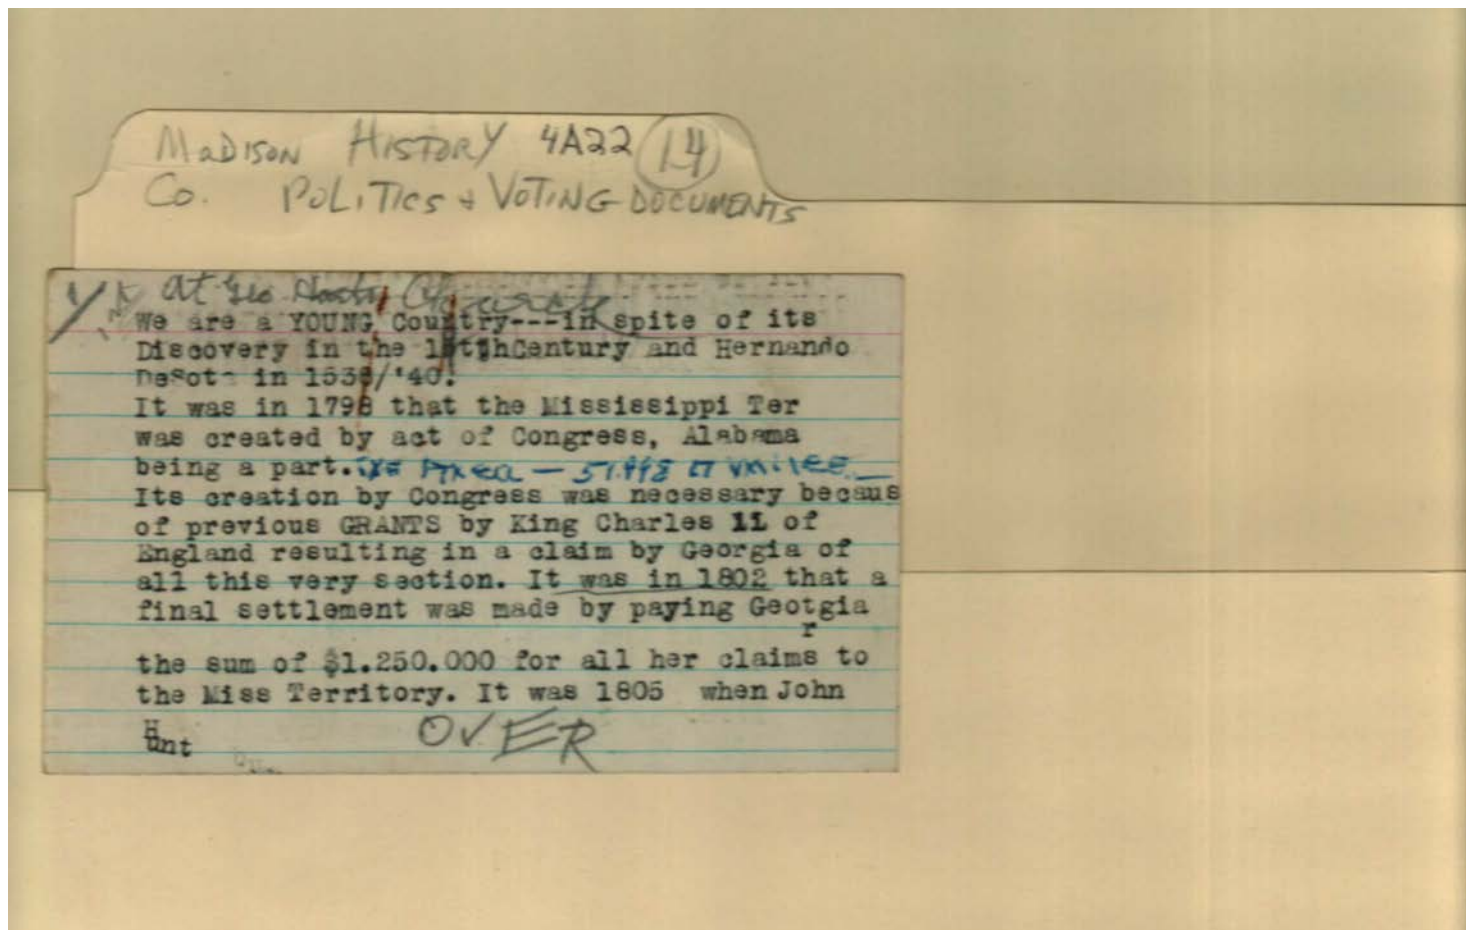 MaDISON HISTORY 4A22 14
Co. POLITICS + VOTING DOCUMENTS
at Geo
We are a YOUNG Country---in spite of its
Discovery in the Century and Hernando
DeSoto in 1538/'40.
It was in 1798 that the Mississippi Ter
was created by act of Congress, Alabama
being a part. AREA —
Its creation by Congress was necessary becaus
of previous GRANTS by King Charles 11 of
England resulting in a claim by Georgia of
all this very section. It was in 1802 that a
final settlement was made by paying Geotgia
r
the sum of $1.250.000 for all her claims to
the Miss Territory. It was 1805 when John
Hunt
OVER